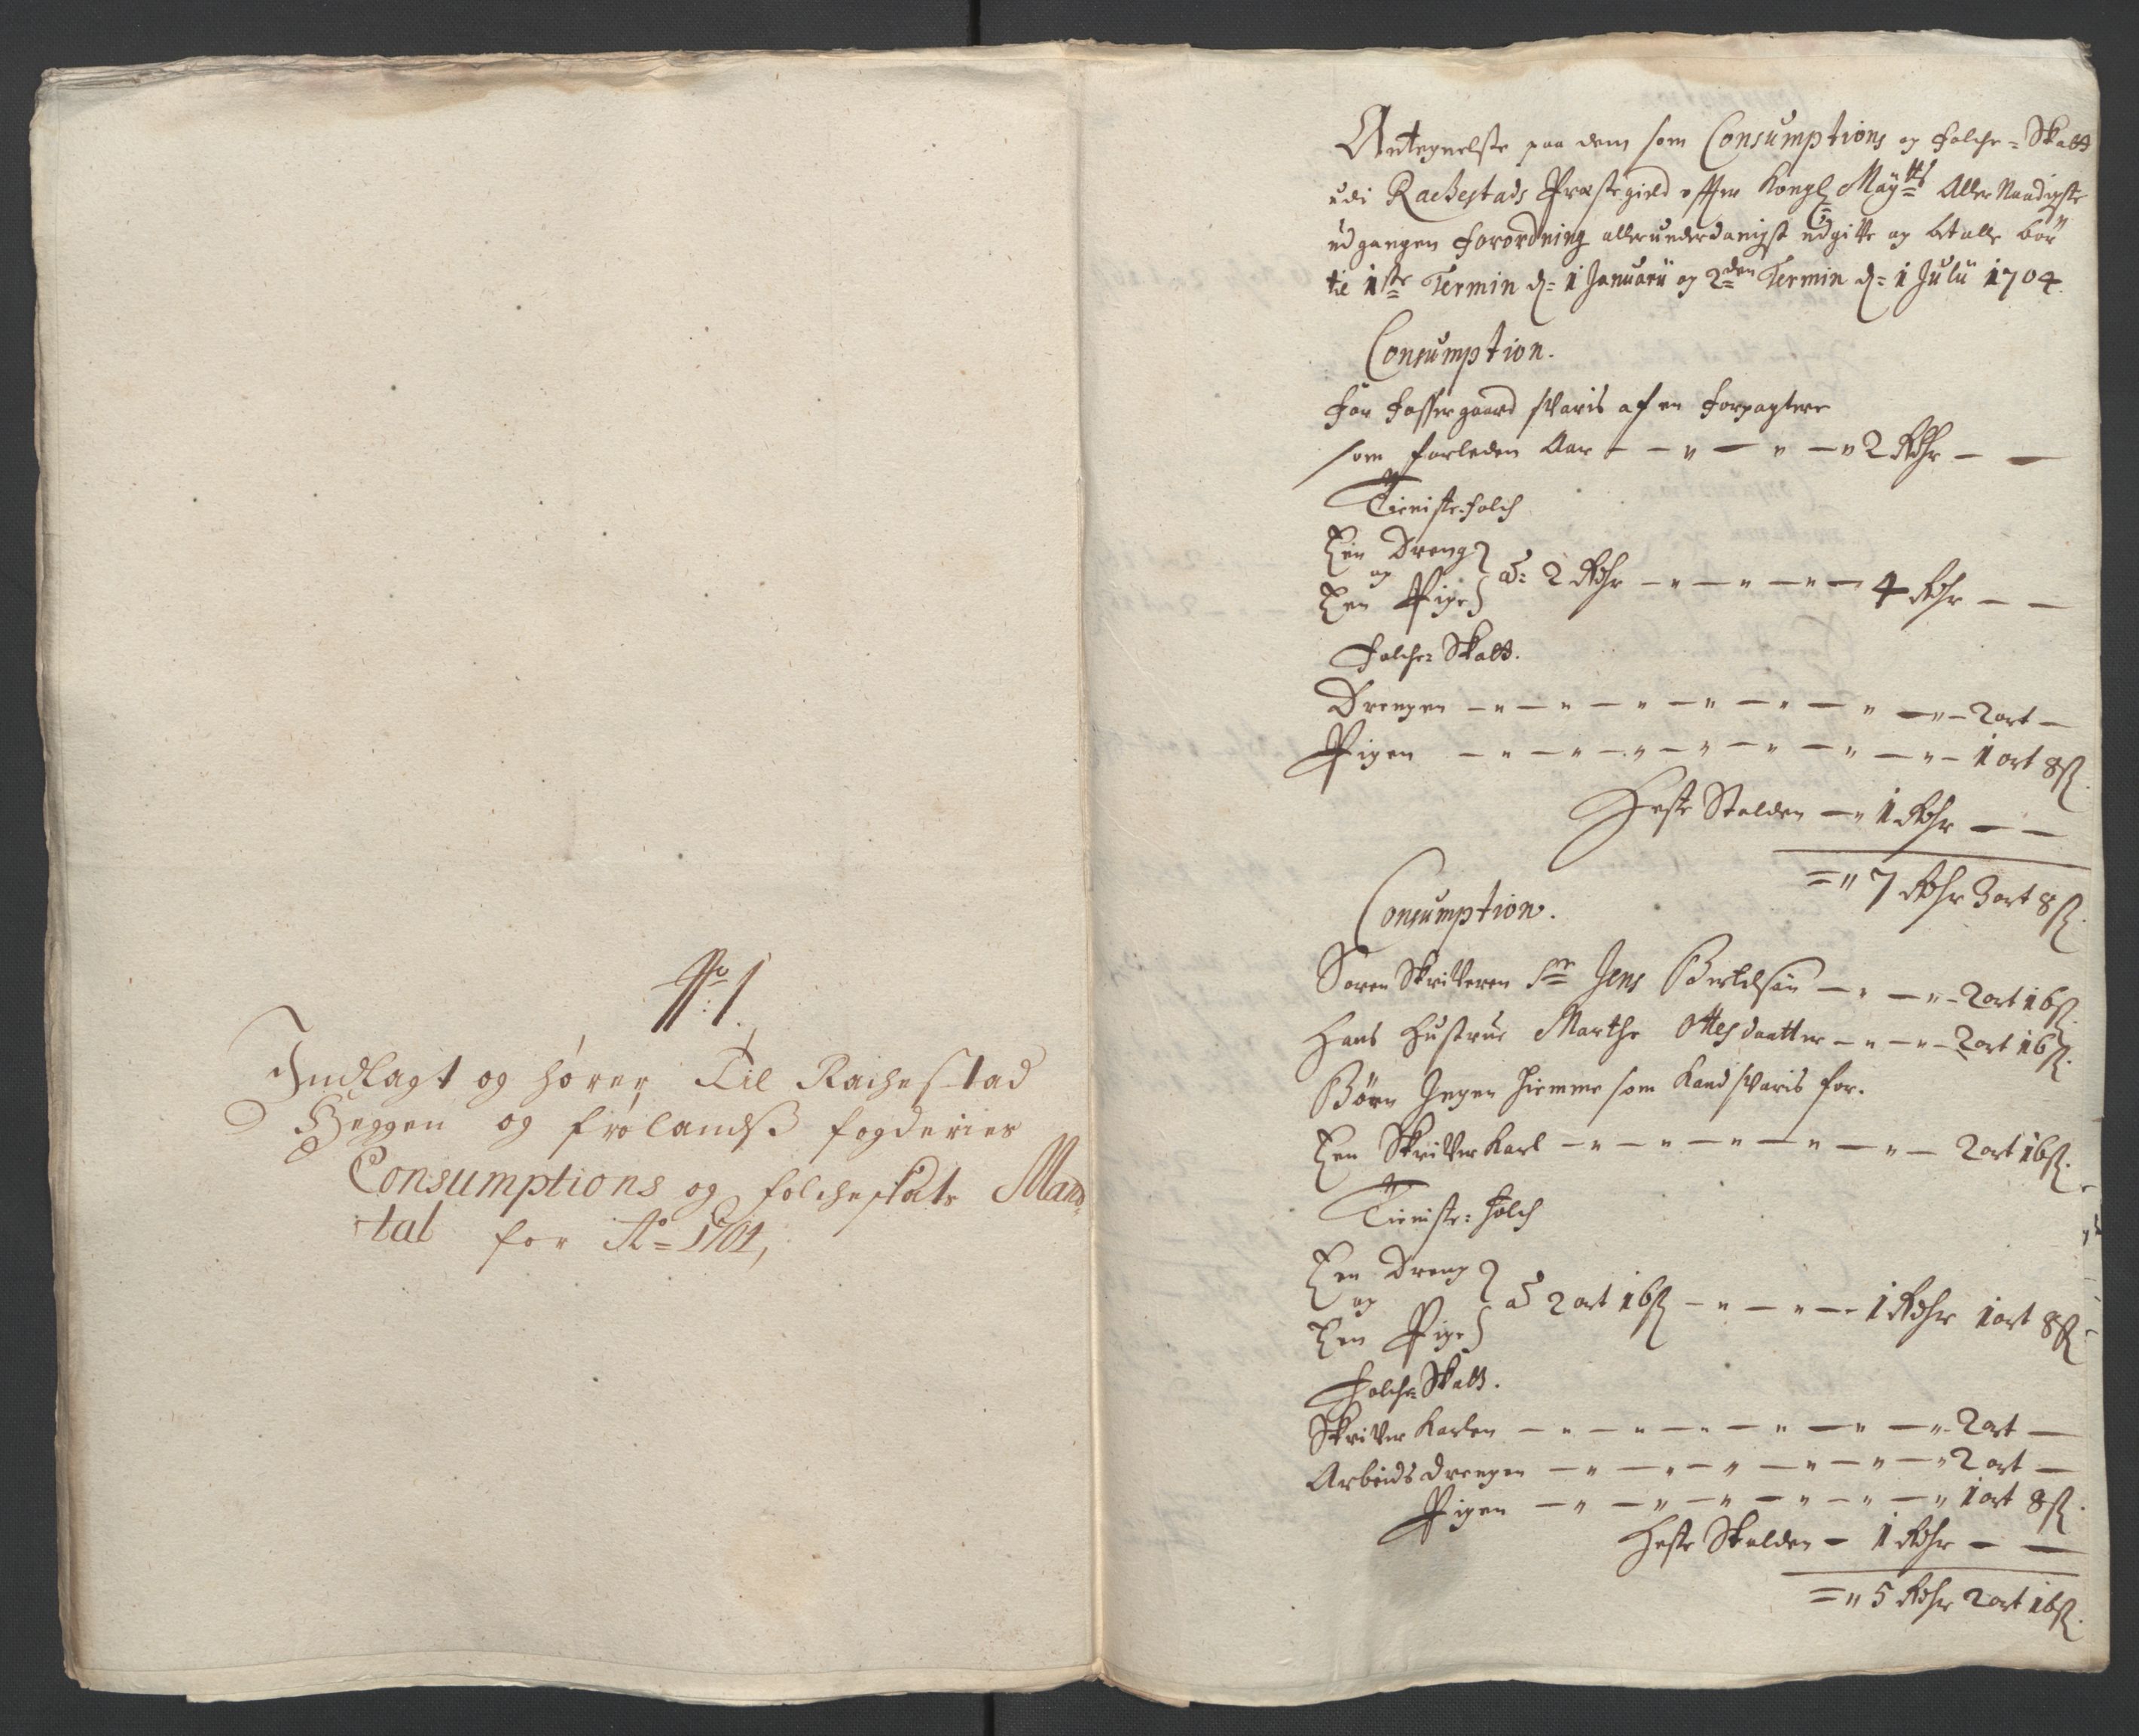 No 1
Indlagt og hører Til Rachestad
Heggen og frølandsß fogderies
Consumptions og folcheskats Man-
tal for Ao 1704,
Antegnelsse paa dem som Consumptions og Folche-Skatt
udi Rachestads Præstegield effter Kongl Maytts Aller Naadigste
udgangen Forordning allerunderdanigst udgitte og betalle bør
til 1ste Termin d: 1 Januarii og 2den Termin d: 1 Julii 1704.
Consumption.
For Fossergaard svaris af en Forpagtere
som forleden Aar 2 Rdhr
Tieniste-Folch
Een Dreng
og
Een Pige
a 2 Rdhr 4 Rdhr
Folche Skatt.
Drengen 2 ort
Pigen 1 ort 8 ß
Heste Stalden 1 Rdhr
7 Rdhr 3 ort 8 ß.
Consumption.
Soren Skrifveren Sr Jens Bertelsøn 2 ort 16 ß.
Hans Hustrue Marthe Ottesdaatter 2 ort 16 ß.
Børn Ingen hiemme som kand svaris for.
Een Skrifver Karl 2 ort 16 ß.
Tieniste: Folch
Een Dreng
og
Een Pige
a 2 ort 16 ß 1 Rdhr 1 ort 8 ß
Folche Skatt.
Skrifver Karlen 2 ort
Arbeids drengen 2 ort
Pigen 1 ort 8 ß.
Heste Stalden 1 Rdhr
5 Rdhr 2 ort 16 ß.